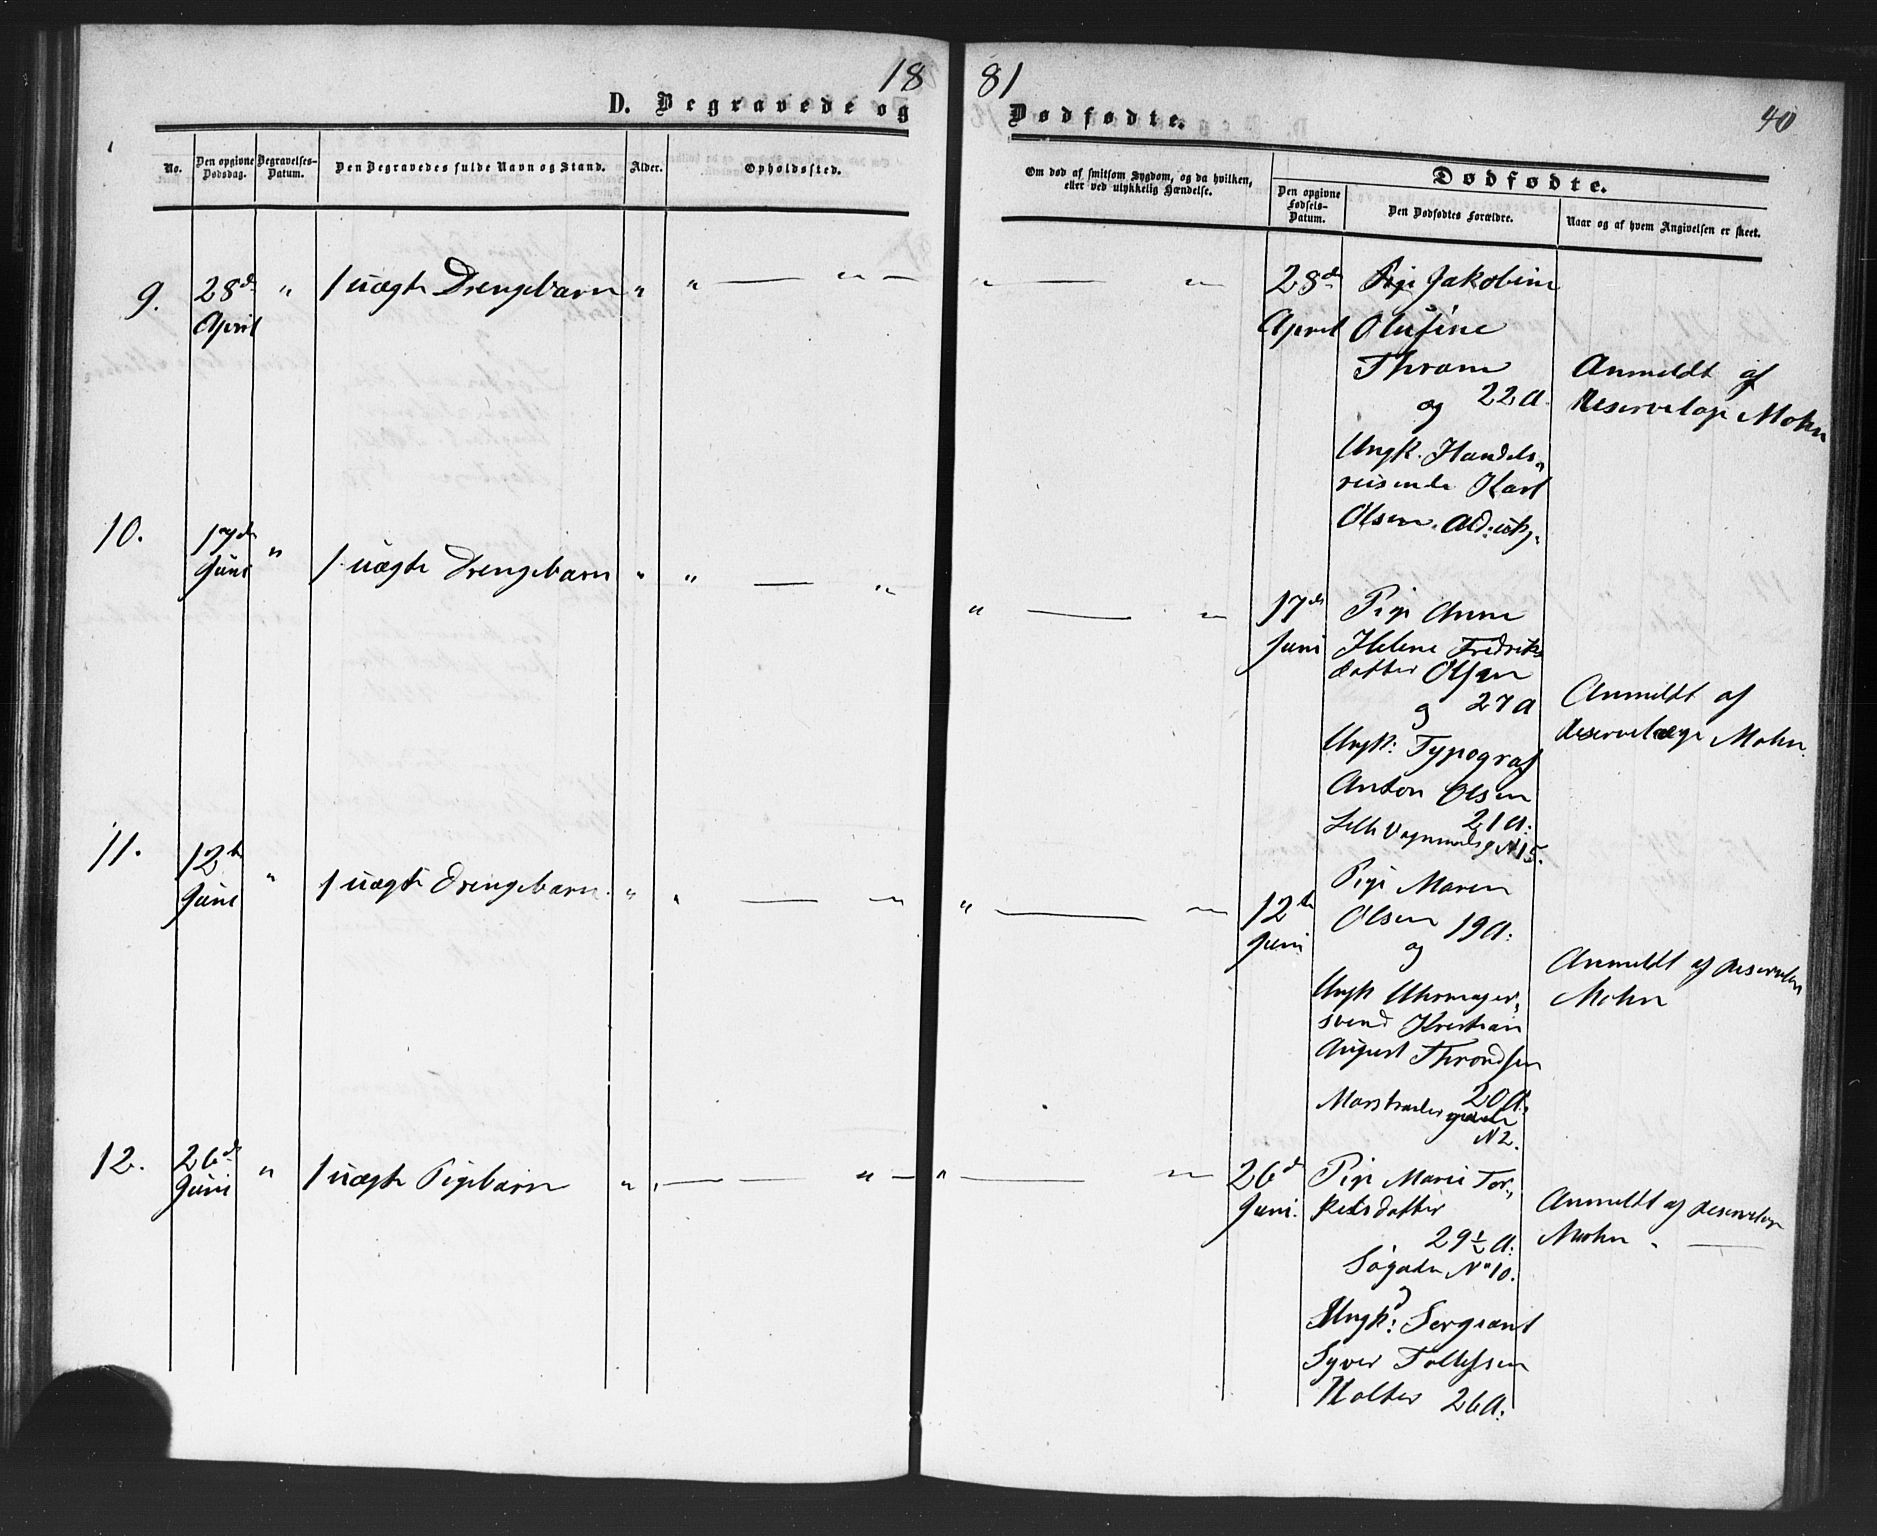 18 81
40
D. Begravede og Dødfødte.
No.
Den opgivne Dødsdag.
Begravelses-Datum.
Den Begravedes fulde Navn og Stand.
Alder.
Opholdssted.
Om død af smitsom Sygdom, og da hvilken,
eller ved ulykkelig Hændelse.
Dødfødte.
Den opgivne Fødsels-Datum.
Den Dødfødtes Forældre.
Naar og af hvem Angivelsen er skeet.
9.
28de
April
"
1 uægte Drengebarn
" " — " —
" — "
28de
April
Pige Jakobine
Olufine
Thrane
22 A.
og
Ungk. Handels-
reisende Karl
Olsen. Ald:
Anmeldt af
Reservelæge Mohn
10.
17de
Juni
"
1 uægte Drengebarn
" " — "
" — "
17de
Juni
Pige Anne
Helene Fredriks
datter Olsen
og 27 A
Ungk: Typograf
Anton Olsen
21 A:
N 15.
Anmeldt af
Reservelæge Mohn.
11.
12te
Juni
"
1 uægte Drengebarn.
" " — "
" — "
12te
Juni
Pige Maren
Olsen 19 A:
og
Ungk Uhrmager-
svend Kristian
August Throndsen
20 A.
Marstrandsgaden
N 2.
Anmeldt af Reservelæge
Mohn
12.
26de
Juni
"
1 uægte Pigebarn
" " — — " —
" — "
26de
Juni.
Pige Marie Tor-
kelsdatter
29½ A:
Søgaden No 10.
og
Ungk: Sergeant
Syver Tollefsen
Holter 26 A:
Anmeldt af Reservelæge
Mohn. —